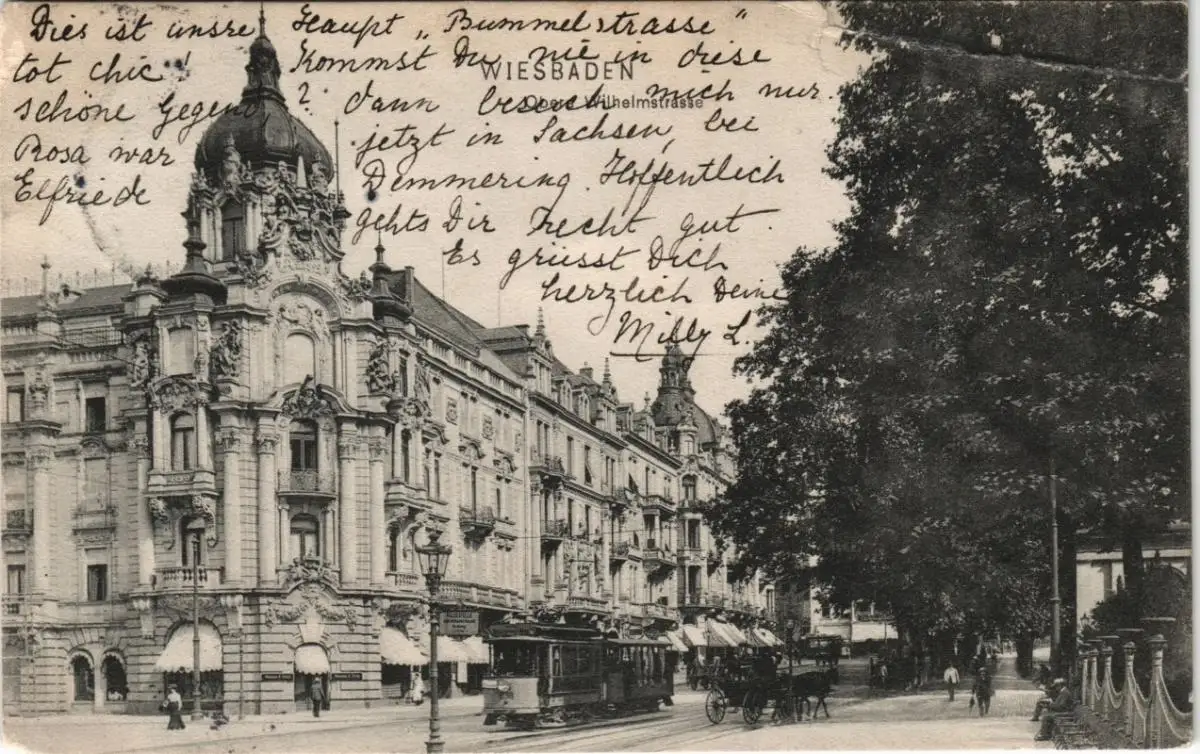 Dies ist unsre Haupt „Bummelstrasse“
tot chic! Kommst Du nie in diese
schöne Gegend? dann besuch mich nur.
Rosa war jetzt in Sachsen, bei
Elfriede Demmering. Hoffentlich
gehts Dir recht gut.
Es grüsst Dich
herzlich Deine
Milly L.
WIESBADEN
Obere Wilhelmstrasse